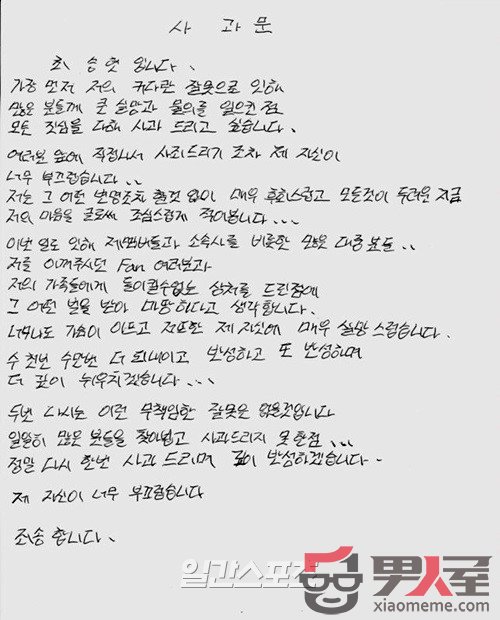 사 과 문
최 승 현 입니다.
가장 먼저 저의 커다란 잘못으로 인해
많은 분들께 큰 실망과 물의를 일으킨 점
모든 진심을 다해 사과 드리고 싶습니다.
여러분 앞에 직접나서 사죄드리기 조차 제 자신이
너무 부끄럽습니다...
저는 그 어떤 변명조차 할것 없이 매우 후회스럽고 모든것이 두려운 지금
저의 마음을 글로써 조심스럽게 적어봅니다...
이번 일로 인해 제멤버들과 소속사를 비롯한 많은 대중 분들..
저를 아껴주시던 Fan 여러분과
저의 가족들에게 돌이킬수없는 상처를 드린점에
그 어떤 벌을 받아 마땅하다고 생각합니다.
너무나도 가슴이 아프고 저또한 제 자신에 매우 실망스럽습니다.
수 천번 수만번 더 되내이고 반성하고 또 반성하며
더 깊이 뉘우치겠습니다....
두번 다시는 이런 무책임한 잘못은 없을것입니다
일일히 많은 분들을 찾아뵙고 사과드리지 못한점...
정말 다시 한번 사과 드리며 깊이 반성하겠습니다.
제 자신이 너무 부끄럽습니다
죄송합니다.
일간스포츠
男人屋
xiaomeme.com